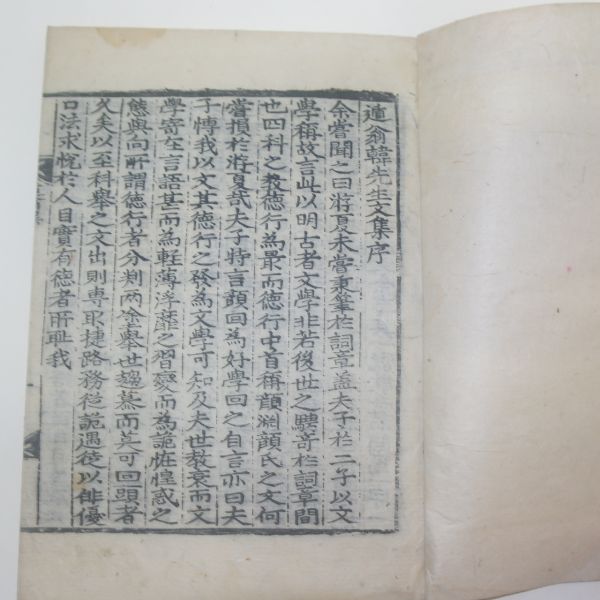 遁翁韓先生文集序
余嘗聞之曰游夏未嘗秉筆於詞章盖夫子於二子以文
學稱故言此以明古者文學非若後世之騁竒於詞章間
也四科之教德行為最而德行中首稱顔淵顔氏之文何
嘗損於游夏哉夫子特言顔回為好學回之自言亦曰夫
子博我以文其德行之發為文學可知及夫世教衰而文
學寄在言語甚而為輕薄浮靡之習憂而為詭恠惶惑之
態與向所謂德行者分判兩塗擧世趨慕而莫可回頭者
久矣以至科擧之文出則專取捷路務從詭遇徒以俳優
口法求悅於人目實有德者所恥我